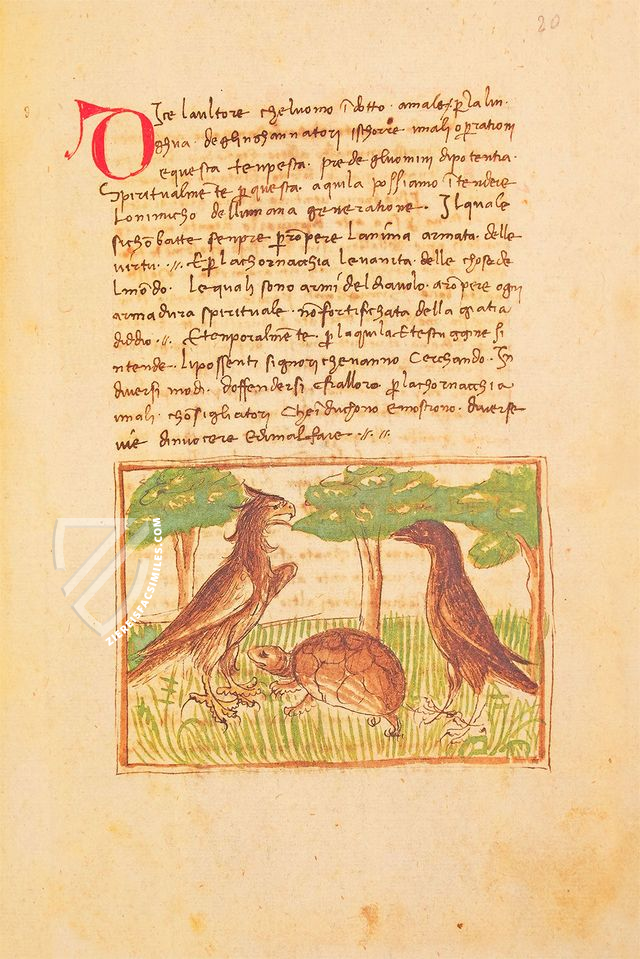 20
Dice laultore cheluomo idotto · amale · p̱ la lin·
ghua · deglinghannatori ischorre imali op̱rationi
equesta tenpesta · prede gluomini dipotentia·
Spiritualmēte p̱ questa · aquila possiamo ītendere
Lonimicho dellumana generatione · Ilquale
sichōbatte senpre p̱ rōpere lanima armata · delle
virtu · // · Ep̱ lachornacchia levanita · delle chose de
lmōdo · Lequali sono armi deldiavolo · arōpere ogni
armadura spirituale · nōfortifichata della gratia
diddio · // · Etenporalmēte · p̱ laquila Etestuggine si
ntende · Lipossenti signori chevanno Cerchando · In
diversi modi · doffendersi Cralloro p̱ lachornacchia
imali · chōsigliatori Cheīduchono emostrono · diverse
vie dinuocere Edimalfare · // · //
ZIEREISFACSIMILES.COM